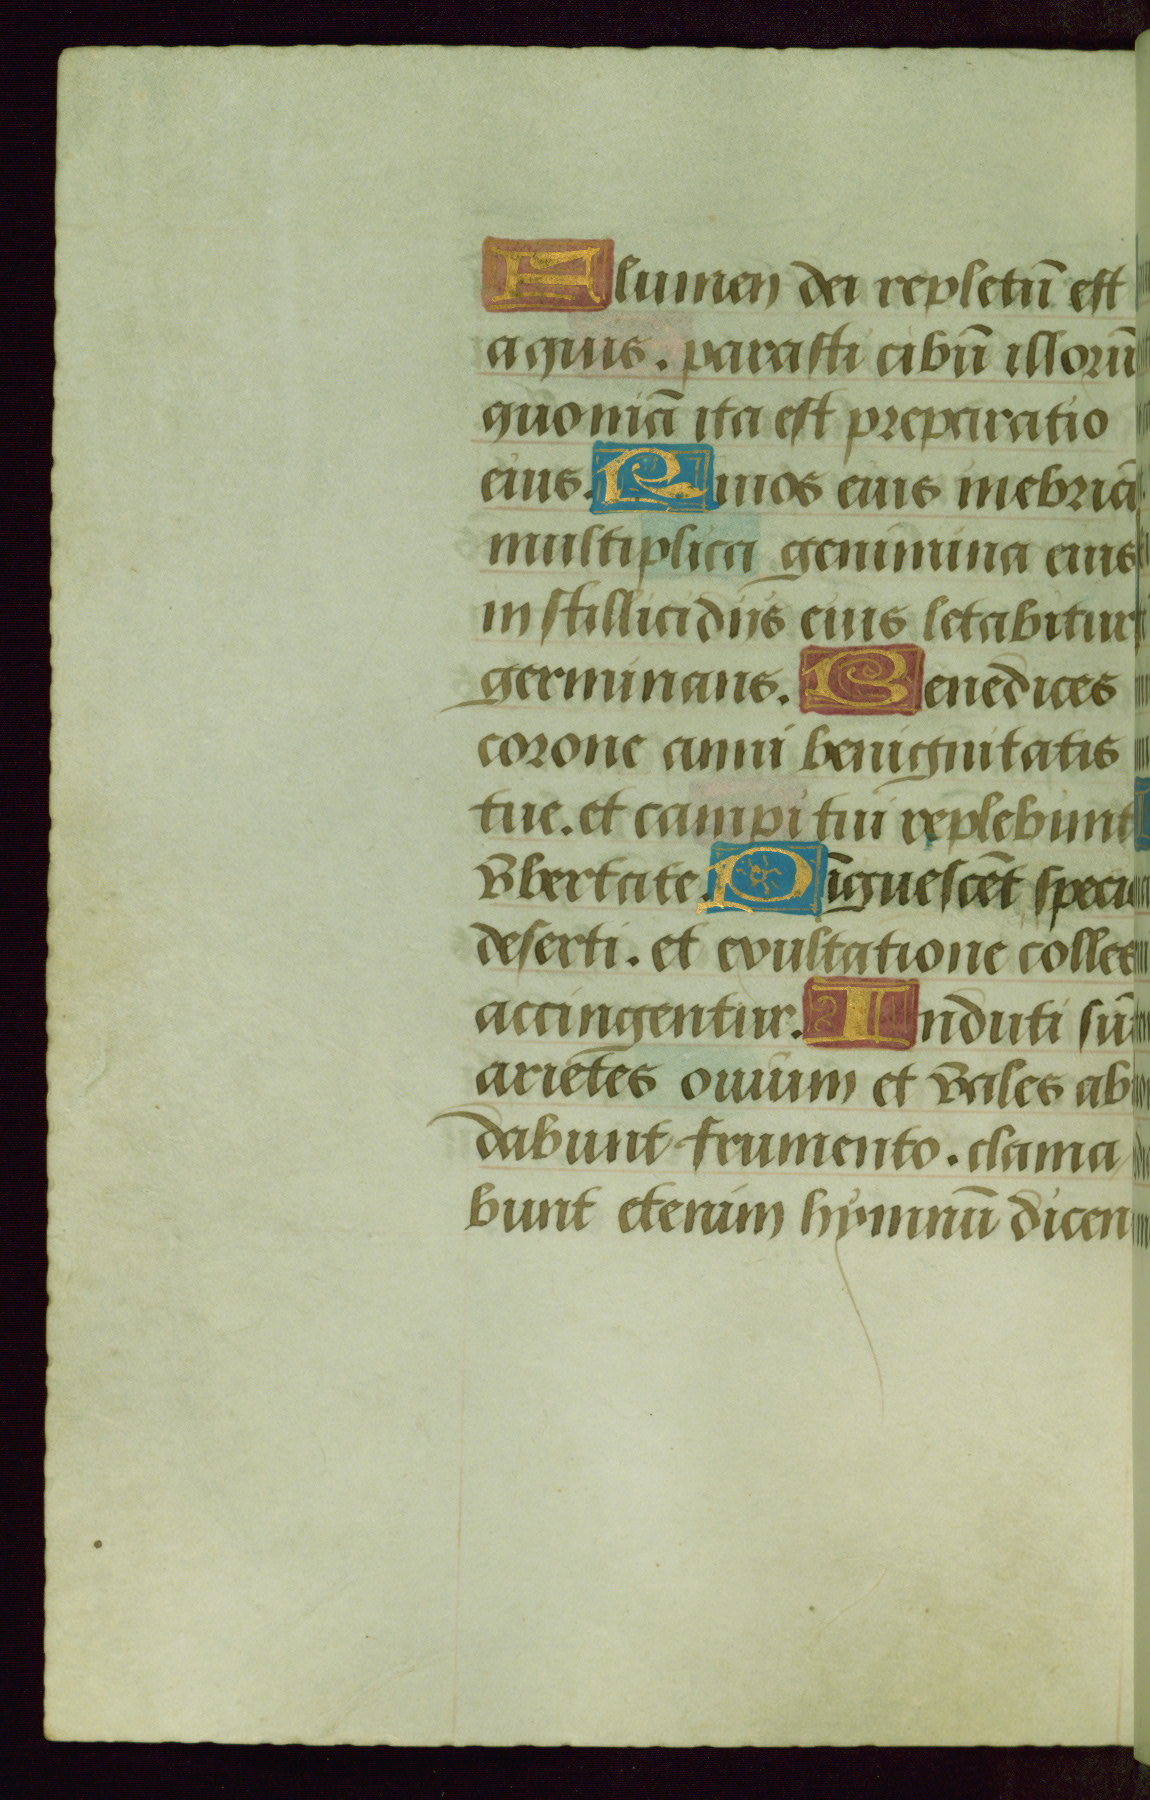 Flumen dei repletū est
aquis. parasti cibū illorū
quoniā ita est preparatio
eius. Riuos eius inebriā
multiplica genimina eius
in stillicidijs eius letabitur
germinans. Benedices
corone anni benignitatis
tue. et campi tui replebunt
vbertate. Pīguescēt speci
deserti. et exultatione colles
accingentur. Induti sūt
arietes ouium et vales ab
dabunt frumento. clama
bunt etenim hymnū dicen